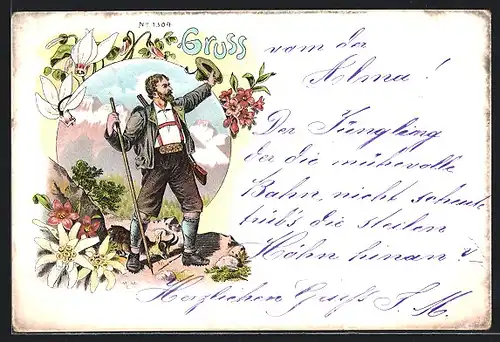 No. 1304
Gruss
vom der
Alma!
Der Jüngling
der die mühevolle
Bahn, nicht scheute
trieb's die steilen
Höhn hinan?
Herzlichen Gruß J. M.